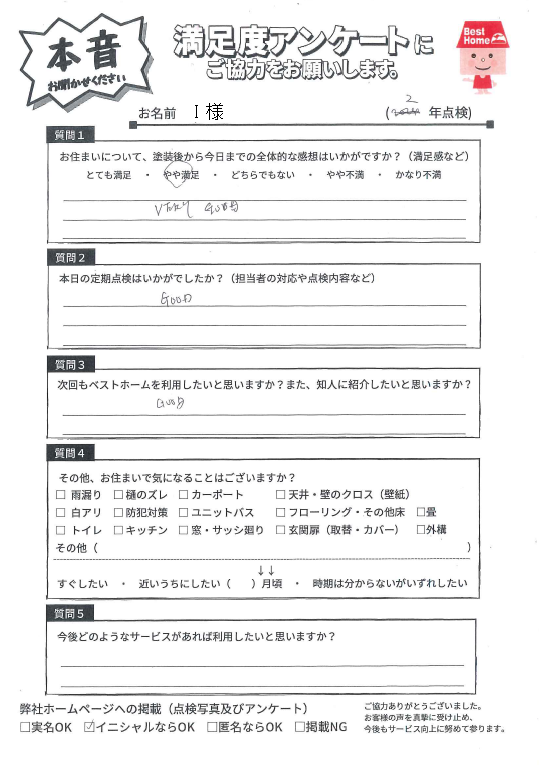 本音
お聞かせください
満足度アンケートに
ご協力をお願いします。
Best Home
お名前 I 様 (2 年点検)
質問1
お住まいについて、塗装後から今日までの全体的な感想はいかがですか?(満足感など)
とても満足 ・ やや満足 ・ どちらでもない ・ やや不満 ・ かなり不満
VERY GOOD
質問2
本日の定期点検はいかがでしたか?(担当者の対応や点検内容など)
GOOD
質問3
次回もベストホームを利用したいと思いますか?また、知人に紹介したいと思いますか?
GOOD
質問4
その他、お住まいで気になることはございますか?
□ 雨漏り □ 樋のズレ □ カーポート □ 天井・壁のクロス(壁紙)
□ 白アリ □ 防犯対策 □ ユニットバス □ フローリング・その他床 □畳
□ トイレ □ キッチン □ 窓・サッシ廻り □ 玄関扉(取替・カバー) □外構
その他( )
↓↓
すぐしたい ・ 近いうちにしたい( )月頃 ・ 時期は分からないがいずれしたい
質問5
今後どのようなサービスがあれば利用したいと思いますか?
弊社ホームページへの掲載(点検写真及びアンケート)
□実名OK ☑イニシャルならOK □匿名ならOK □掲載NG
ご協力ありがとうございました。
お客様の声を真摯に受け止め、
今後もサービス向上に努めて参ります。